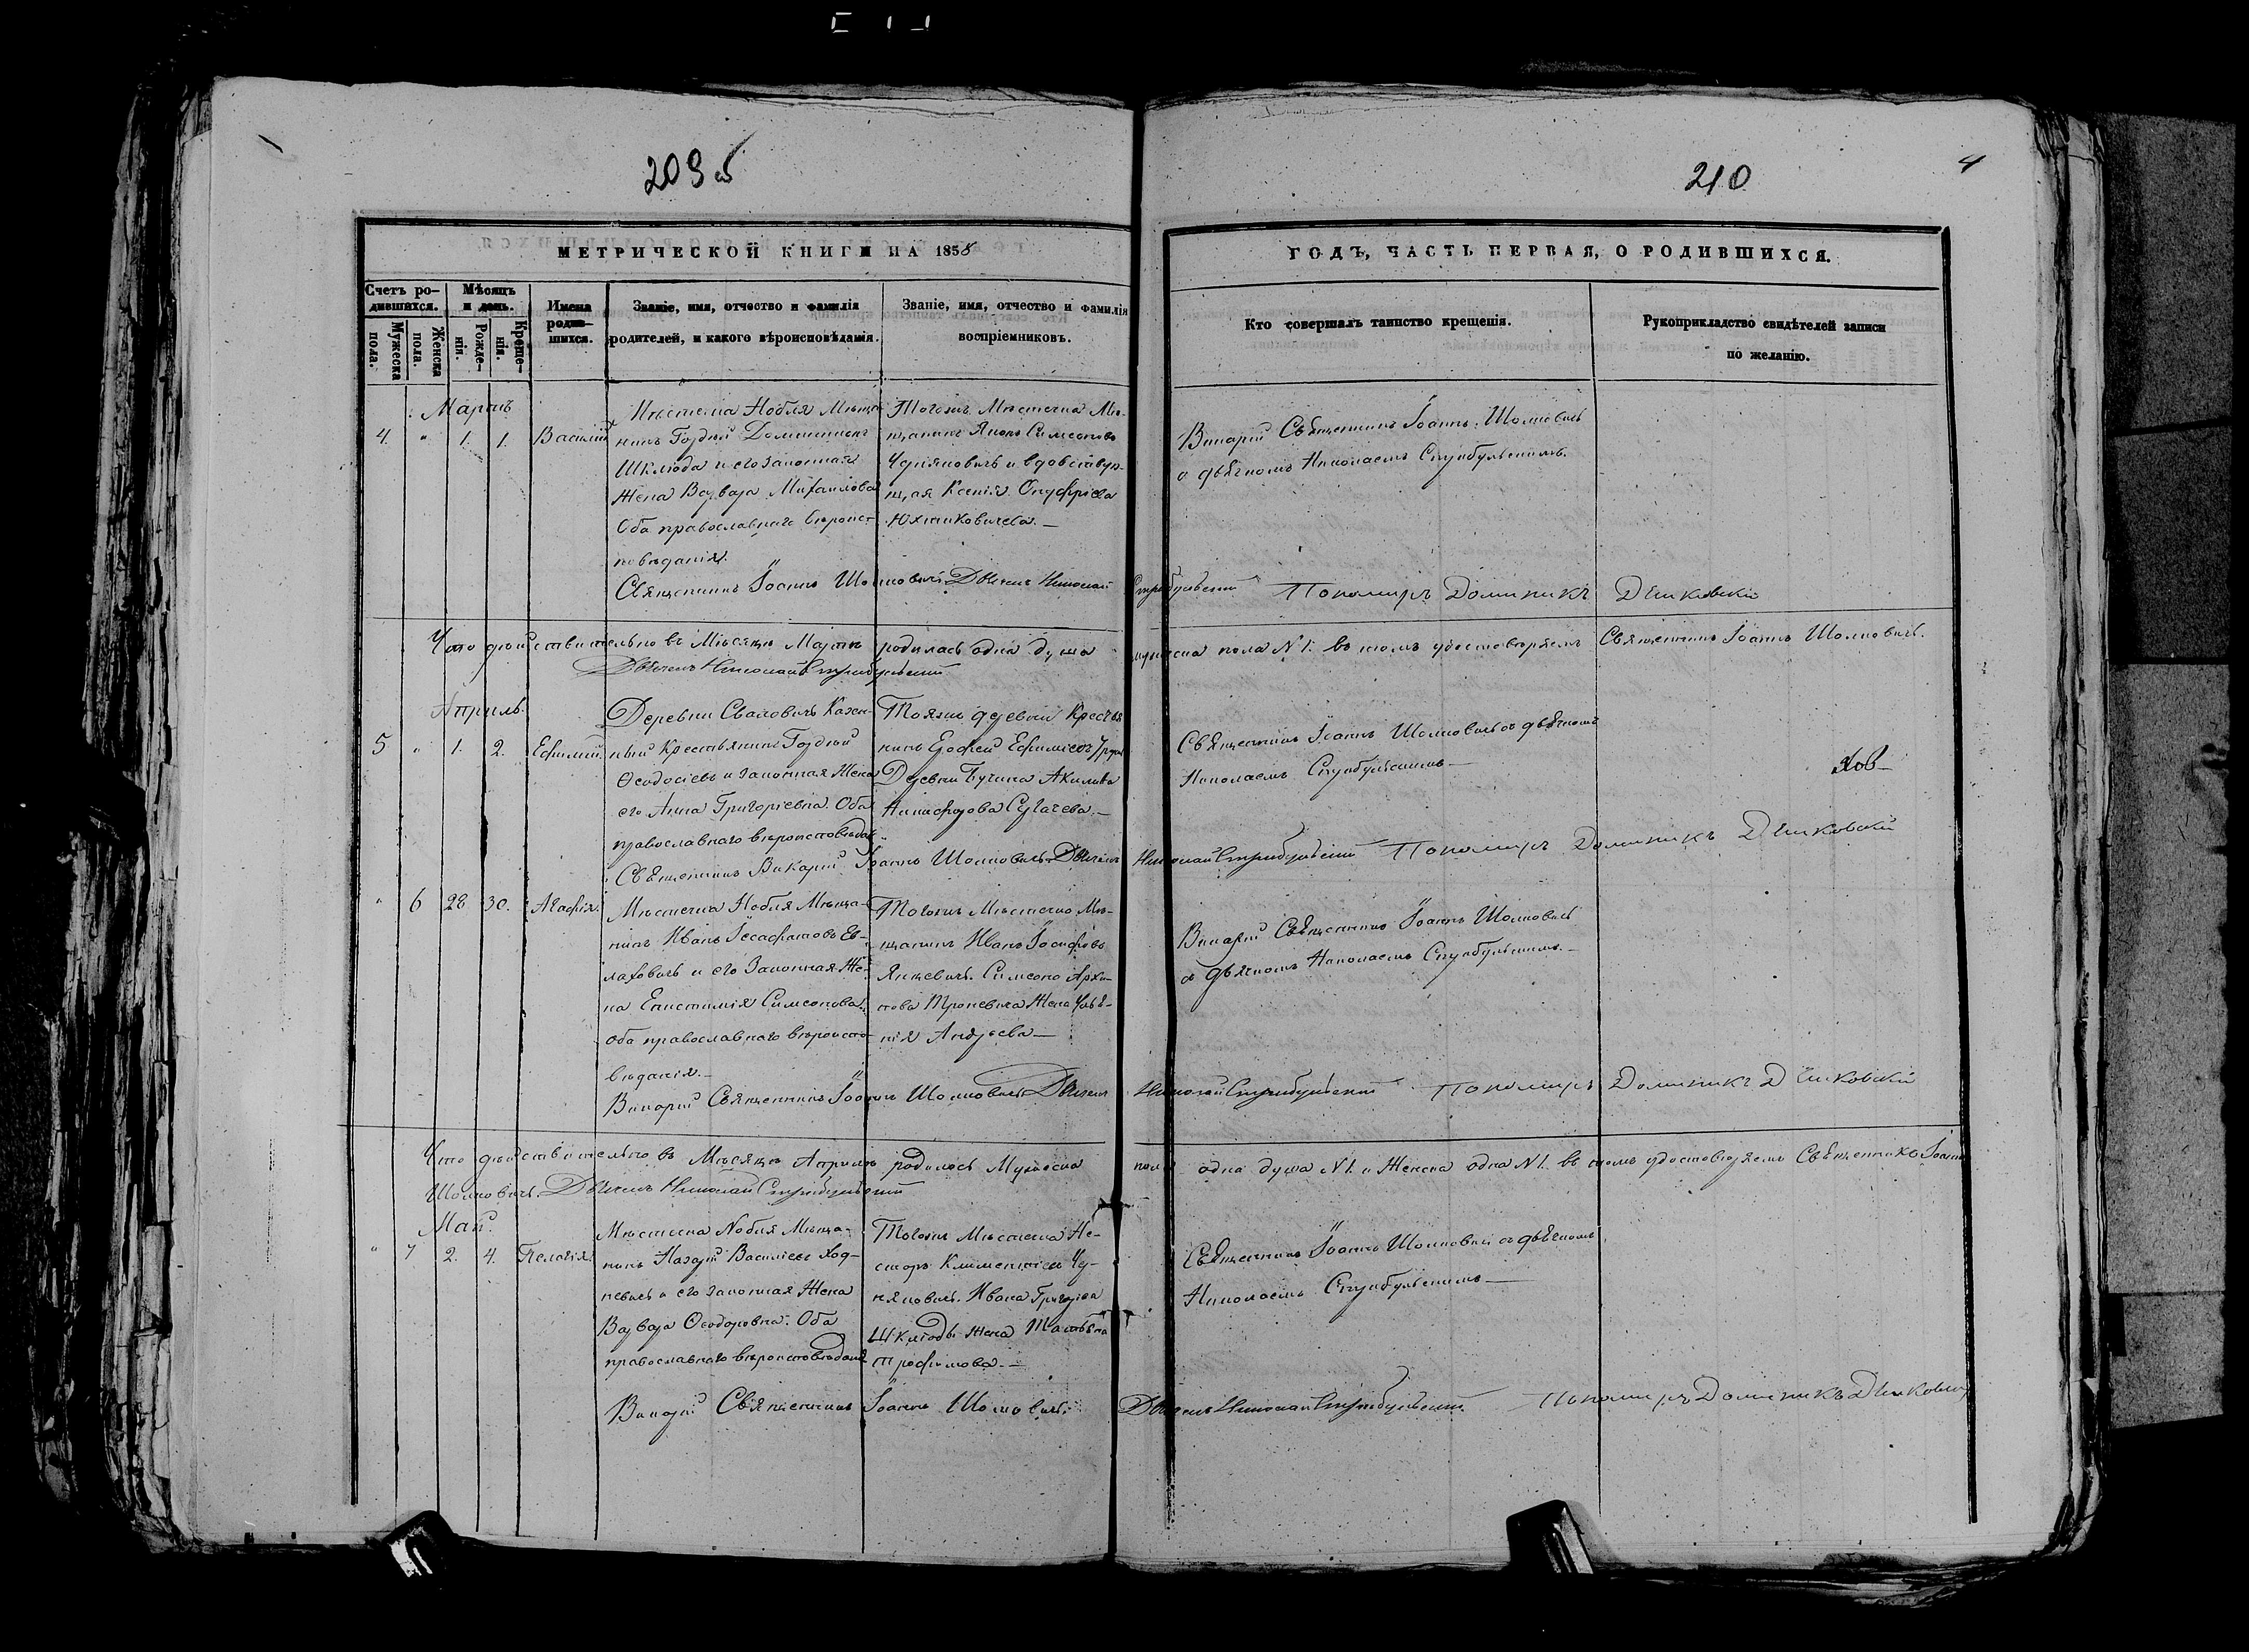 209 об
210
4
МЕТРИЧЕСКОЙ КНИГИ НА 1858
ГОДЪ, ЧАСТЬ ПЕРВАЯ, О РОДИВШИХСЯ.
Счетъ ро-
дившихся.
Мужеска
пола.
Женска
пола.
Мѣсяцъ
и день.
Рожде-
нія.
Креще-
нія.
Имена
родив-
шихся.
Званіе, имя, отчество и фамилія
родителей, и какого вѣроисповѣданія.
Званіе, имя, отчество и фамилія
воспріемниковъ.
Кто совершалъ таинство крещенія.
Рукоприкладство свидѣтелей записи
по желанію.
Мартъ
4. " 1. 1. Василій
Мѣстечка Нобля Мѣща-
нинъ Гордѣй
Шклюда и его законная
Жена Варвара Михаилова
Оба православнаго вѣроис-
повѣданія.
Тогожъ Мѣстечка Мѣ-
щанинъ Яковъ Симеоновъ
и вдовствую-
щая Ксенія Онуфріева
Викарій Священникъ Іоаннъ Шоломовичь
с дьячкомъ Николаемъ Стрибульскимъ.
Священникъ Іоаннъ Шоломовичъ Дьячекъ Николай Стрибульскій Пономарь Доминикъ
Что дѣйствительно въ Мѣсяцѣ Мартѣ родилась одна душа мужеска пола № 1. въ томъ удостовѣряемъ Священникъ Іоаннъ Шоломовичъ.
Дьячекъ Николай Стрибульскій
Апрѣль.
5 " 1. 2. Ефимій
Деревни Сваловичъ Казен-
ный Крестьянинъ Гордѣй
Ѳеодосіевъ и законная Жена
его Анна Григоріевна. Оба
православнаго вѣроисповѣдан.
Тояжъ деревни Крестья
нинъ Ерофей Ефиміевъ
Деревни Бучина Акилина
Никифорова Сугачева.—
Священникъ Іоаннъ Шоломовичъ съ дьячкомъ
Николаемъ Стрибульскимъ—
Священникъ Викарій Іоаннъ Шоломовичъ Дьячекъ Николай Стрибульскій Пономарь Доминикъ
" 6 28 30. Агафія.
Мѣстечка Нобля Мѣща-
нинъ Иванъ Іосафатовъ Ев-
лаховичь и его Законная Же-
на Епистимія Симеонова.
оба православнаго вѣроиспо-
вѣданія.—
Тогожъ Мѣстечка Мѣ-
щанинъ Иванъ Іосифовъ
Янцевичъ. Симеона Архи-
пова Жена
Андреева—
Викарій Священникъ Іоаннъ Шоломовичь
с дьячкомъ Николаемъ Стрибульскимъ.—
Викарій Священникъ Іоаннъ Шоломовичъ Дьячекъ Николай Стрибульскій Пономарь Доминикъ
Что дѣйствительно въ Мѣсяцѣ Апрѣлѣ родилось Мужеска пола одна душа № 1. и Женска одна № 1. въ томъ удостовѣряемъ Священникъ Іоаннъ
Шоломовичъ. Дьячекъ Николай Стрибульскій
Май.
" 7 2. 4. Пелагія.
Мѣстечка Нобля Мѣща-
нинъ Назарій Василіевъ Ход-
невичь и его законная Жена
Варвара Ѳеодоровна. Оба
православнаго вѣроисповѣданія
Тогожъ Мѣстечка Не-
сторъ Климентіевъ
Ивана Григорiева
Шклюды Жена Татьяна
Трофимова.—
Священникъ Іоаннъ Шоломовичъ съ дьячкомъ
Николаемъ Стрибульскимъ—
Викарій Священникъ Іоаннъ Шоломовичъ. Дьячекъ Николай Стрибульскій Пономарь Доминикъ